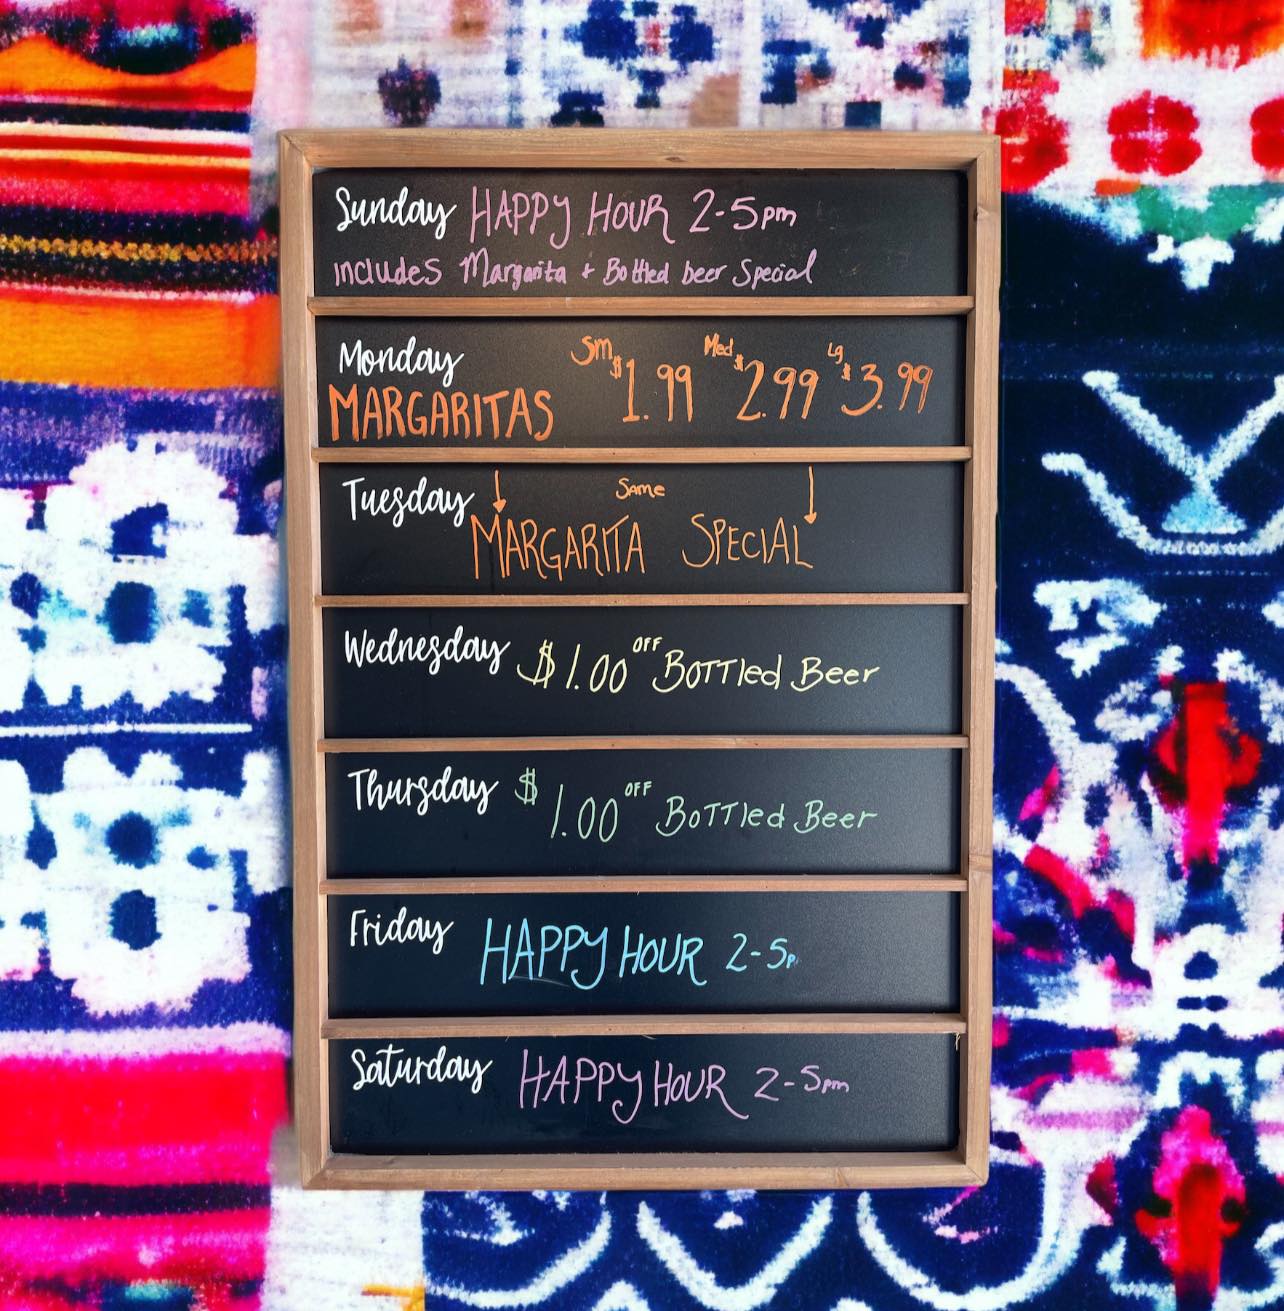 Sunday HAPPY HOUR 2-5pm
includes Margarita + Bottled beer Special
Monday Sm $1.99 Med $2.99 Lg $3.99
MARGARITAS
Tuesday Same
MARGARITA SPECIAL
Wednesday $1.00 OFF BOTTled Beer
Thursday $1.00 OFF BOTTled Beer
Friday HAPPY HOUR 2-5p
Saturday HAPPY HOUR 2-5pm